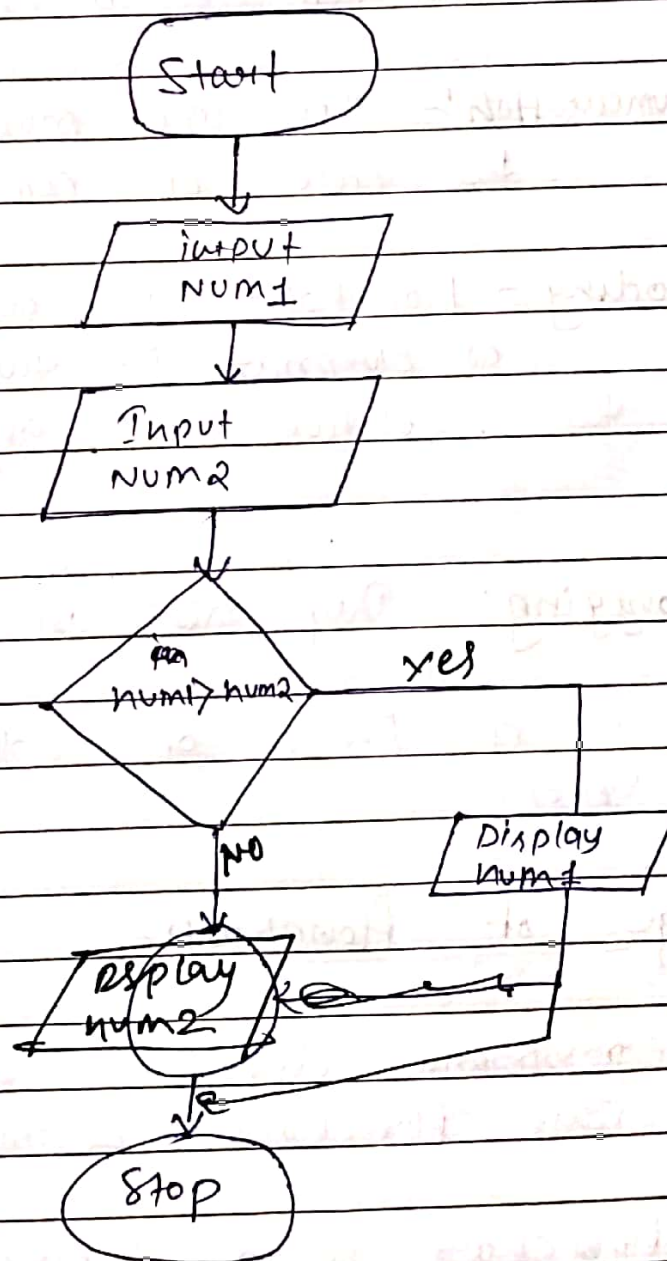 Start
input
NUM1
Input
NUM2
num1> num2
yes
NO
Display
num1
Display
num2
Stop